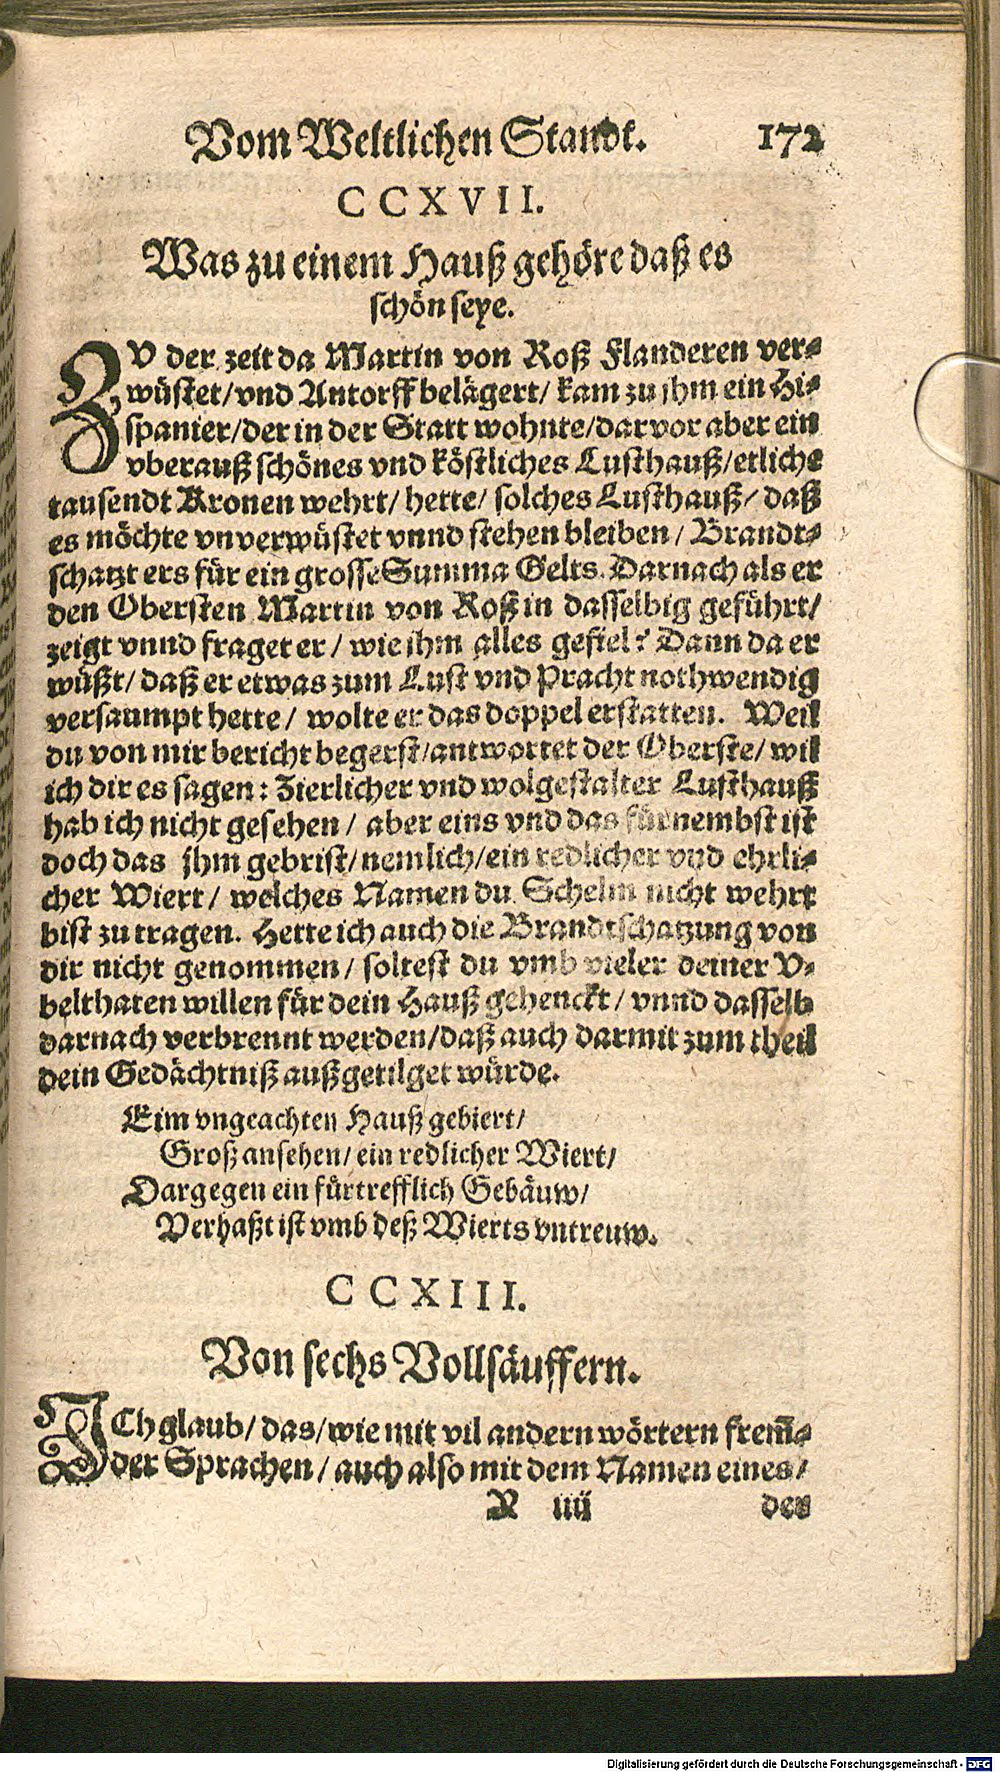 Vom Weltlichen Standt. 172
CCXVII.
Was zu einem Hauß gehöre daß es
schön seye.
ZV der zeit da Martin von Roß Flanderen ver-
wüstet/vnd Antorff belägert/ kam zu jhm ein Hi-
spanier/der in der Statt wohnte/darvor aber ein
vberauß schönes vnd köstliches Lusthauß/etliche
tausendt Kronen wehrt/ hette/ solches Lusthauß/ daß
es möchte vnverwüstet vnnd stehen bleiben/ Brandt-
schatzt ers für ein grosse Summa Gelts. Darnach als er
den Obersten Martin von Roß in dasselbig geführt/
zeigt vnnd fraget er/ wie jhm alles gefiel? Dann da er
wüßt/ daß er etwas zum Lust vnd Pracht nothwendig
versaumpt hette/ wolte er das doppel erstatten. Weil
du von mir bericht begerst/antwortet der Oberste/ wil
ich dir es sagen: Zierlicher vnd wolgestalter Lusthauß
hab ich nicht gesehen/ aber eins vnd das fürnembst ist
doch das jhm gebrist/nemlich/ein redlicher vnd ehrli-
cher Wiert/ welches Namen du Schelm nicht wehrt
bist zu tragen. Hette ich auch die Brandtschatzung von
dir nicht genommen/ soltest du vmb vieler deiner V-
belthaten willen für dein Hauß gehenckt/ vnnd dasselb
darnach verbrennt werden/daß auch darmit zum theil
dein Gedächtniß außgetilget würde.
Eim vngeachten Hauß gebiert/
Groß ansehen/ein redlicher Wiert/
Dargegen ein fürtrefflich Gebäuw/
Verhaßt ist vmb deß Wierts vntreuw.
CCXIII.
Von sechs Vollsäuffern.
ICh glaub/ das/wie mit vil andern wörtern frem̃-
der Sprachen/ auch also mit dem Namen eines/
R iiij der
Digitalisierung gefördert durch die Deutsche Forschungsgemeinschaft - DFG